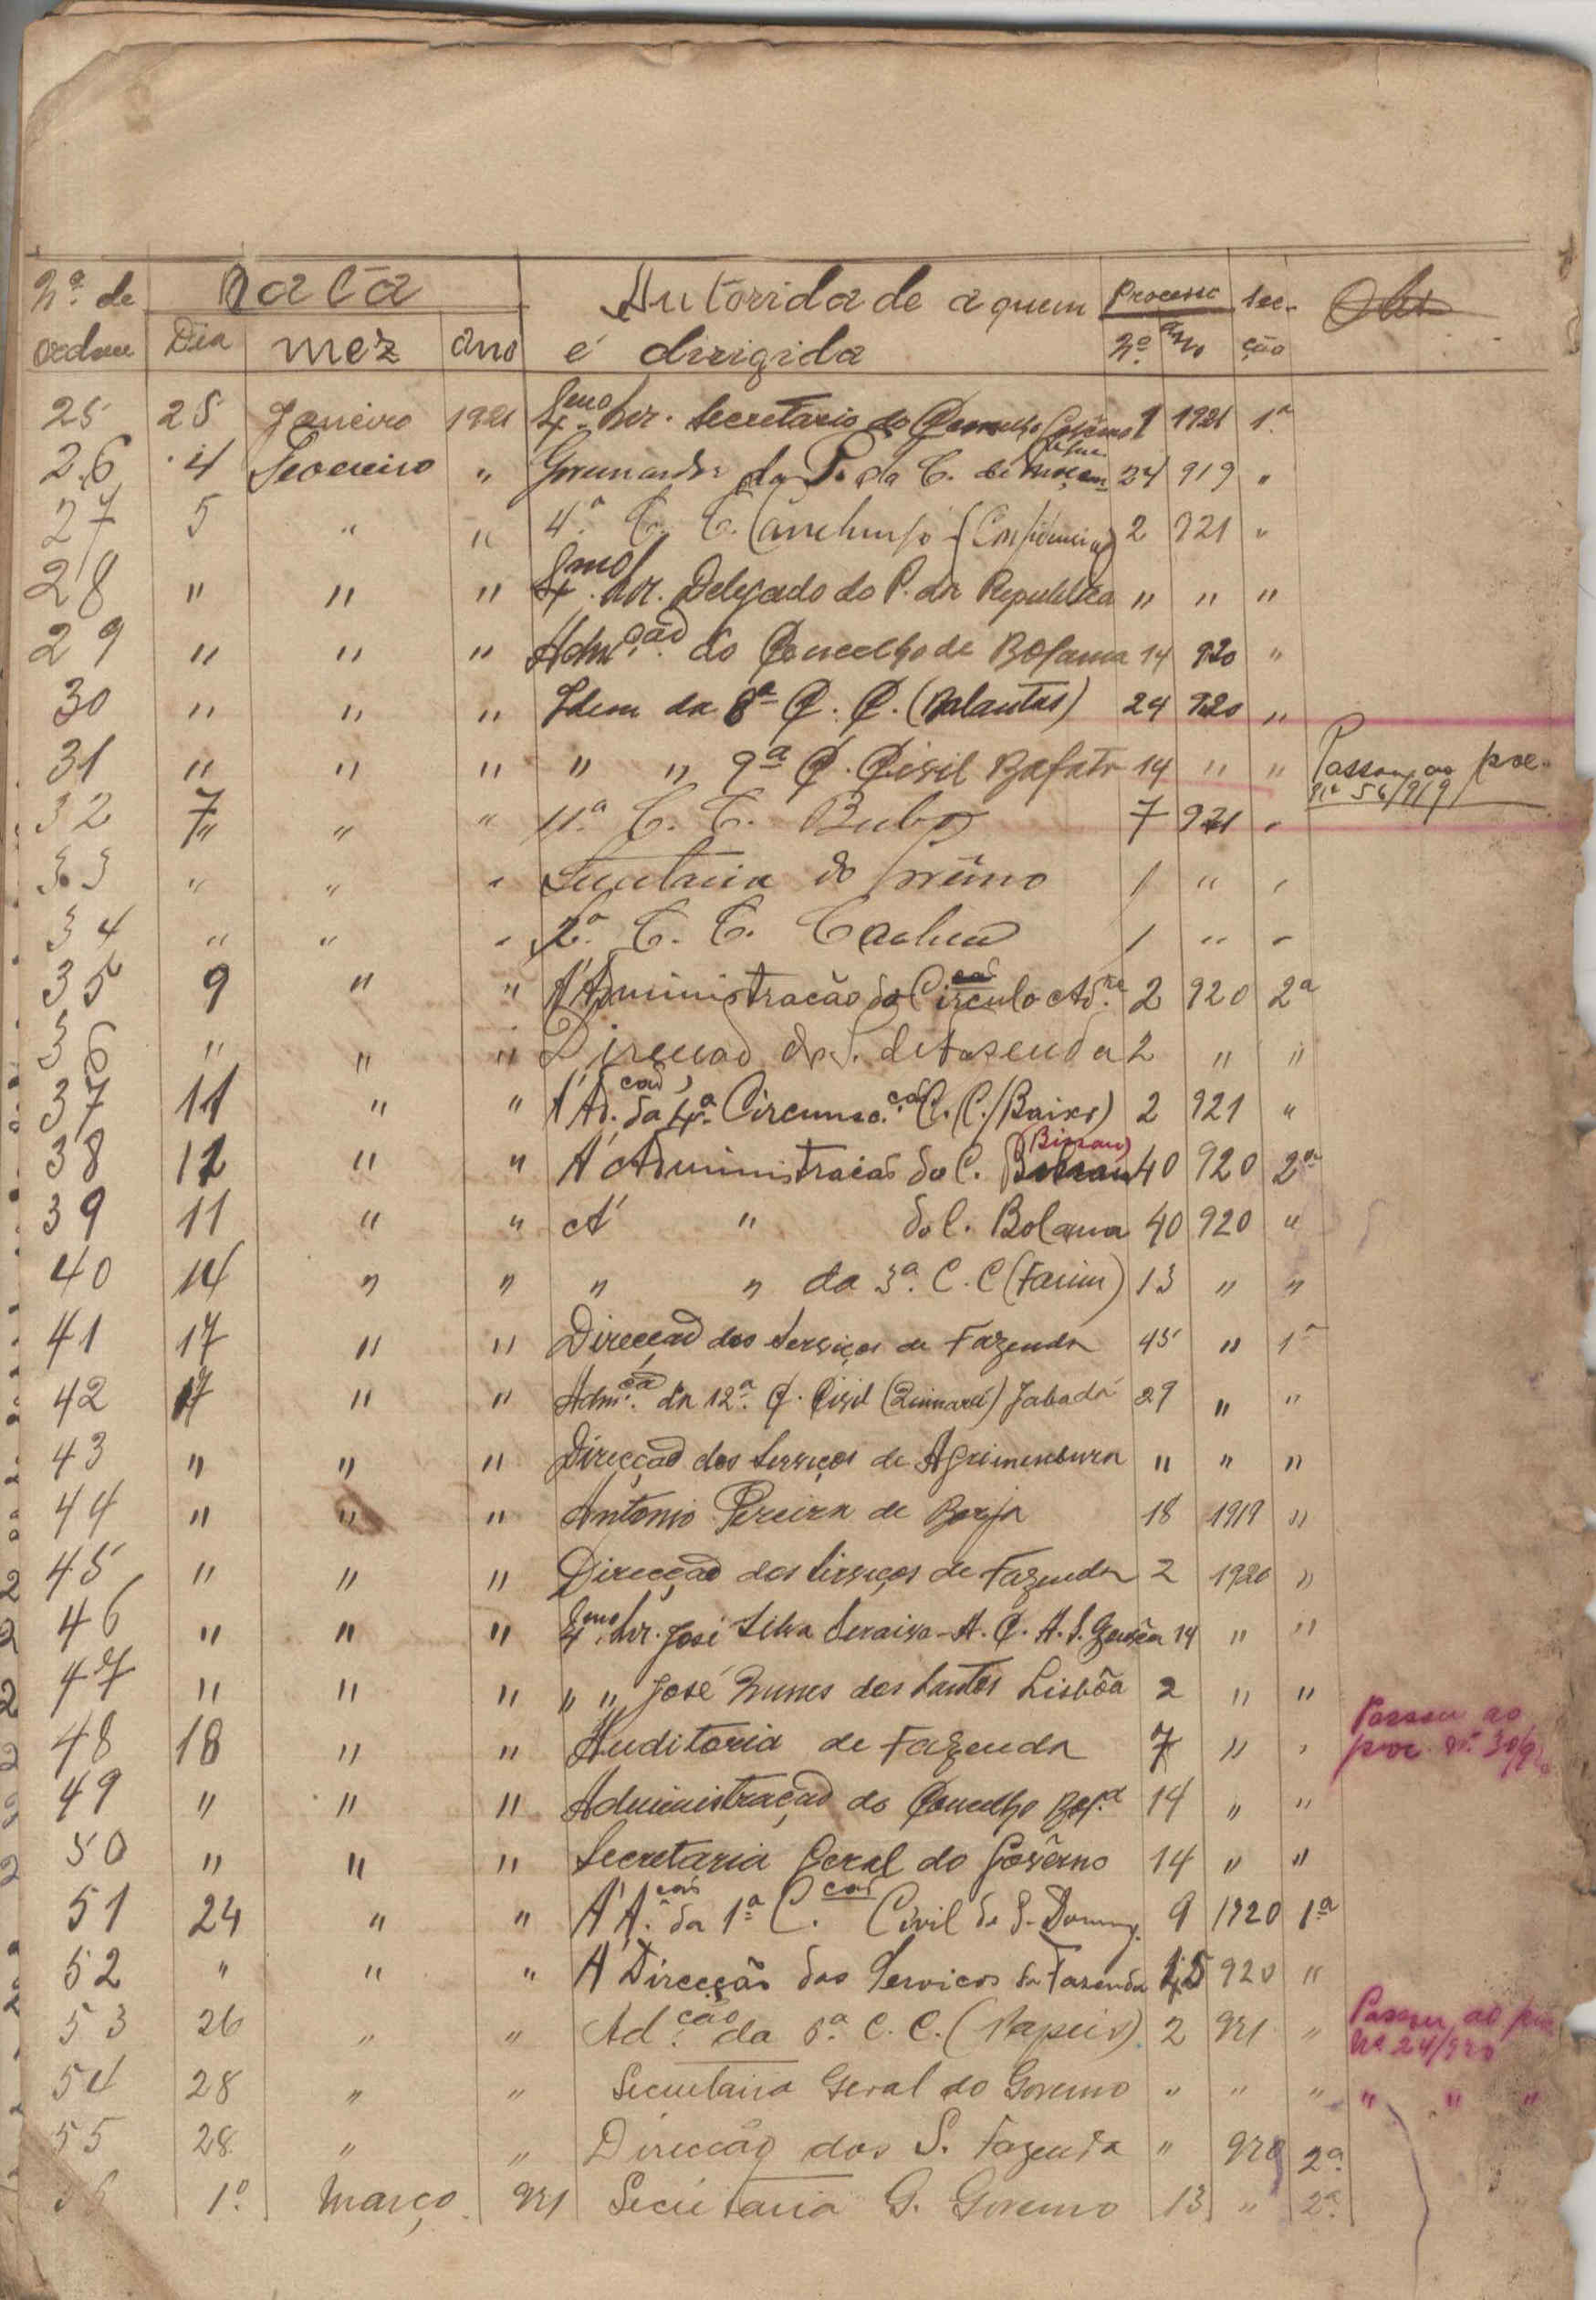 Nº de Data Autoridade a quem Processo Sec-
ordem Dia mez ano é dirigida Nº Ano ção
25 25 Janeiro 1921 Exmo Snr. Secretario do Conselho Govêrno 1 1921 1ª
26 4 Fevereiro " da P. da C. de 24 919 "
27 5 " " 4ª C. C. Canchungo (Confidencial) 2 921 "
28 " " " Exmo Snr. Delegado do P. da Republica " " "
29 " " " Admção do Concelho de Bolama 14 920 "
30 " " " Idem da 8ª C. C. (Balantas) 24 920 "
31 " " " " " 9ª C. Civil Bafatá 14 " " Passou ao proc.
nº 56/919
32 7 " " 11ª C. C. Buba 7 921 "
33 " " " Secretaria do Govêrno 1 " "
34 " " " 2ª C. C. Cacheu 1 " "
35 9 " " Á Administracão do Circulo 2 920 2ª
36 " " " Direcção dos S. de Fazenda 2 " "
37 11 " " Á Ad.cão da 4ª Circunsc.cão C. (C./Baixo) 2 921 "
38 12 " " Á Administracão do C. (Bissau) 40 920 2ª
39 11 " " Á " do C. Bolama 40 920 "
40 14 " " " " da 3ª C. C (Farim) 13 " "
41 17 " " Direcção dos Serviços de Fazenda 45 " 1ª
42 17 " " Adm.ção da 12ª C. Civil (Quinará) Jabadá 29 " "
43 " " " Direcção dos Serviços de Agrimensura " " "
44 " " " António Pereira de Borja 18 1919 "
45 " " " Direcção dos Serviços de Fazenda 2 1920 "
46 " " " Exmo Snr. José Silva Seraiva - A. C. A. S. 14 " "
47 " " " " " José Nunes dos Santos Lisbôa 2 " "
48 18 " " Auditoria de Fazenda 7 " " Passou ao
proc. nº 30/920
49 " " " Administração do Concelho Bol.ª 14 " "
50 " " " Secretaria Geral do Govêrno 14 " "
51 24 " " Á A.cão da 1ª C.cão Civil de S. Doming. 9 1920 1ª
52 " " " Á Direcção dos Servicos da Fazenda 15 920 "
53 26 " " Ad.cão da 6ª C. C. (Papeis) 2 921 " Passou ao proc
Nº 24/920
54 28 " " Secretaria Geral do Governo " " " " " "
55 28 " " Direccão dos S. Fazenda " 920 2ª
56 1º Março 921 Secretaria G. Governo 13 " 2ª